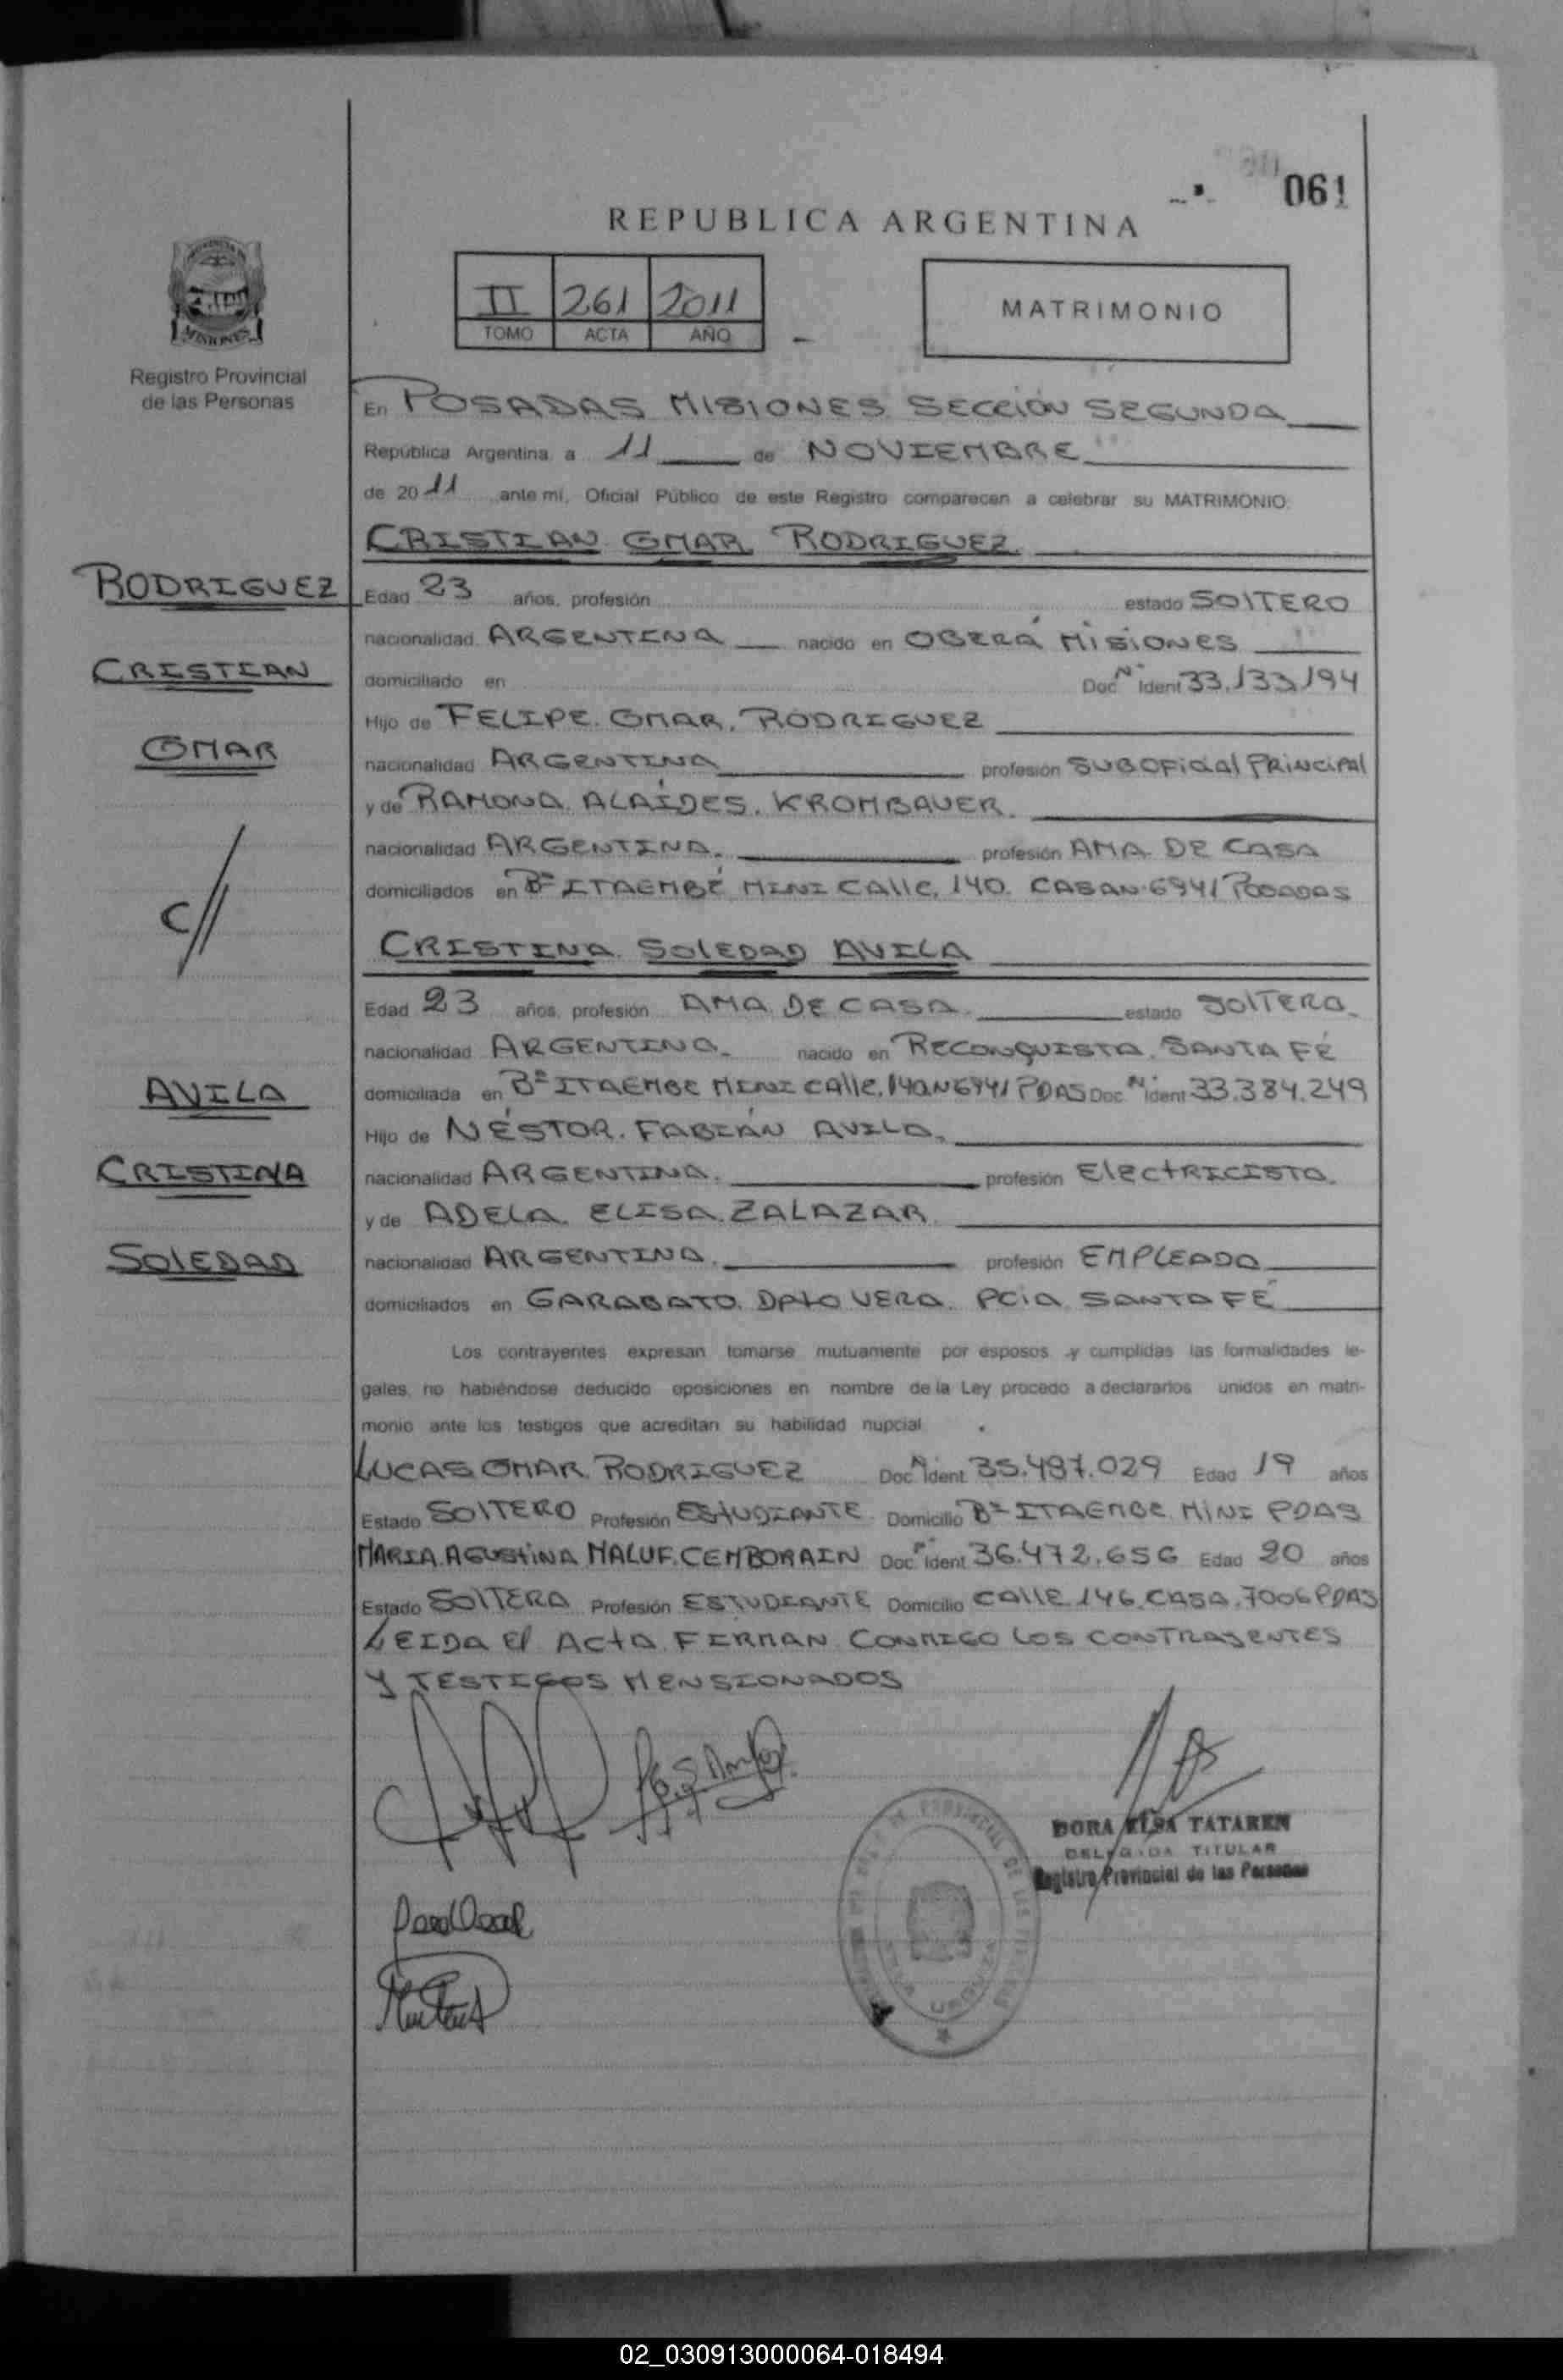 061
REPUBLICA ARGENTINA
II 261 2011
TOMO ACTA AÑO
MATRIMONIO
MISIONES
Registro Provincial
de las Personas
En POSADAS MISIONES SECCIÓN SEGUNDA
República Argentina a 11 de NOVIEMBRE
de 2011 ante mi, Oficial Público de este Registro comparecen a celebrar su MATRIMONIO:
CRISTIAN OMAR RODRIGUEZ
RODRIGUEZ
CRISTIAN
OMAR
C//
Edad 23 años, profesión estado SOLTERO
nacionalidad ARGENTINA nacido en OBERÁ MISIONES
domiciliado en Doc Nº Ident 33.133.194
Hijo de FELIPE. OMAR. RODRIGUEZ
nacionalidad ARGENTINA profesión SUBOFICIAL PRINCIPAL
y de RAMONA. ALAÍDES. KROMBAUER.
nacionalidad ARGENTINA. profesión AMA DE CASA
domiciliados en Bº ITAEMBÉ MINI CALLE. 140. CASA Nº 6941 POSADAS
CRISTINA SOLEDAD AVILA
AVILA
CRISTINA
SOLEDAD
Edad 23 años, profesión AMA DE CASA. estado SOLTERA.
nacionalidad ARGENTINA. nacido en RECONQUISTA. SANTA FÉ
domiciliada en Bº ITAEMBE MINI CALLE. 140 N 6941 PDAS Doc Nº Ident 33.384.249
Hijo de NÉSTOR. FABIÁN AVILA.
nacionalidad ARGENTINA. profesión ELECTRICISTA.
y de ADELA. ELISA. ZALAZAR.
nacionalidad ARGENTINA. profesión EMPLEADA
domiciliados en GARABATO. DPTO VERA. PCIA SANTA FÉ
Los contrayentes expresan tomarse mutuamente por esposos y cumplidas las formalidades le-
gales, no habiéndose deducido oposiciones en nombre de la Ley procedo a declararlos unidos en matri-
monio ante los testigos que acreditan su habilidad nupcial
LUCAS OMAR RODRIGUEZ Doc Nº Ident 35.487.029 Edad 19 años
Estado SOLTERO Profesión ESTUDIANTE Domicilio Bº ITAEMBE MINI PDAS
MARIA. AGUSTINA MALUF. CEMBORAIN Doc. Nº Ident 36.472.656 Edad 20 años
Estado SOLTERA Profesión ESTUDIANTE Domicilio CALLE 146. CASA. 7006 PDAS
LEIDA El ACTA FIRMAN CONMIGO LOS CONTRAYENTES
Y TESTIGOS MENSIONADOS
DORA ELSA TATAREN
DELEGADA TITULAR
Registro Provincial de las Personas
02_030913000064-018494